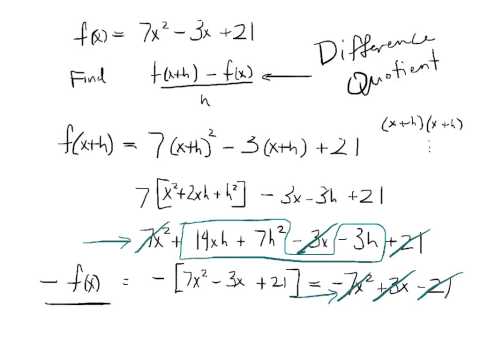 f(x) = 7x² - 3x + 21
Find f(x+h) - f(x) / h ← Difference Quotient
f(x+h) = 7(x+h)² - 3(x+h) + 21
(x+h)(x+h)
⋮
7[x²+2xh+h²] - 3x - 3h + 21
→ 7x² + 14xh + 7h² - 3x - 3h + 21
- f(x) = -[7x² - 3x + 21] = → -7x² + 3x - 21